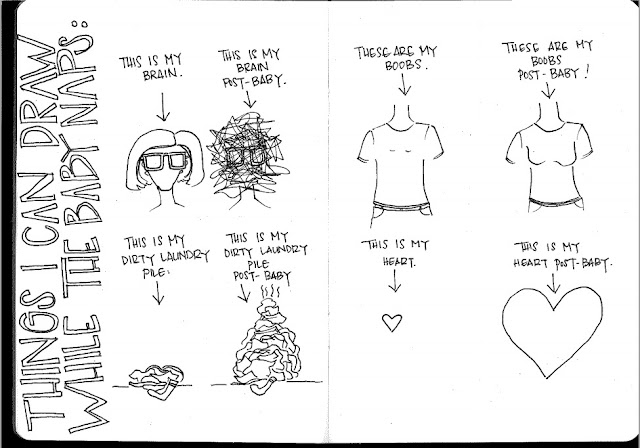 THINGS I CAN DRAW
WHILE THE BABY NAPS:
THIS IS MY
BRAIN.
THIS IS MY
BRAIN
POST-BABY.
THIS IS MY
DIRTY LAUNDRY
PILE.
THIS IS MY
DIRTY LAUNDRY
PILE
POST-BABY
THESE ARE MY
BOOBS.
THESE ARE MY
BOOBS
POST-BABY!
THIS IS MY
HEART.
THIS IS MY
HEART POST-BABY.